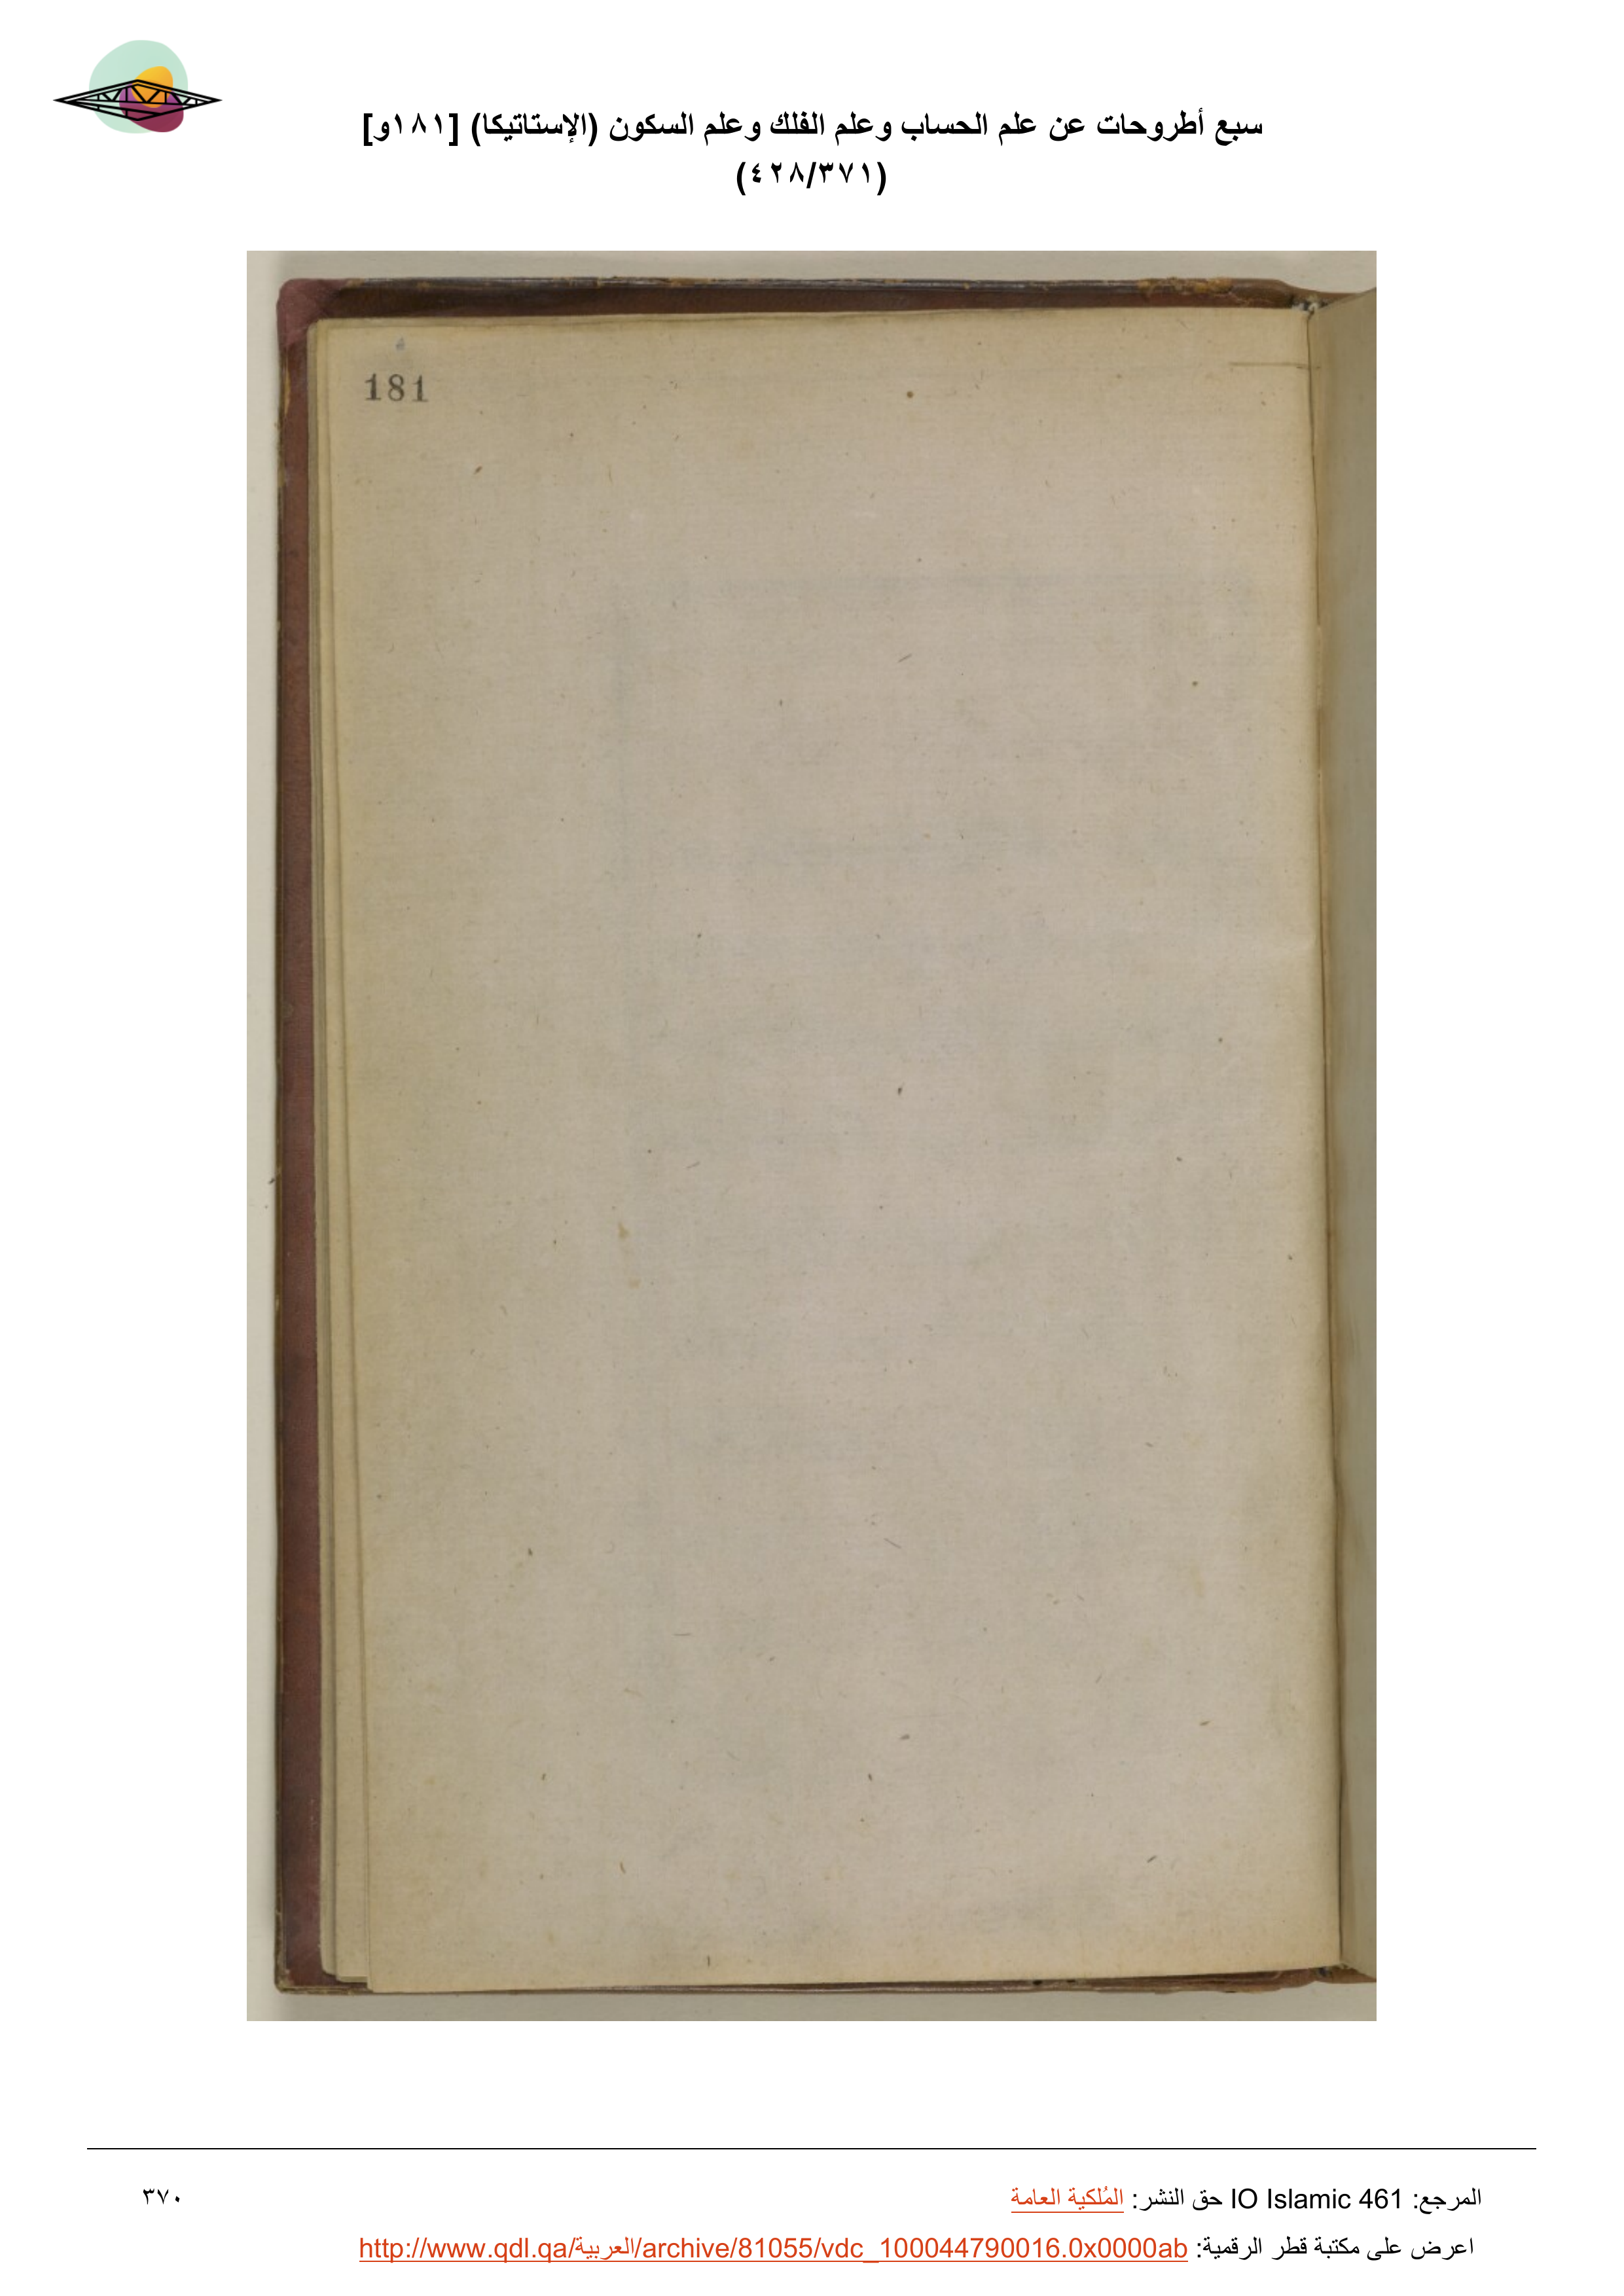 سبع أطروحات عن علم الحساب وعلم الفلك وعلم السكون (الإستاتيكا) [١٨١و]
(٤٢٨/٣٧١)
181
المرجع: IO Islamic 461 حق النشر: المُلكية العامة
٣٧٠
اعرض على مكتبة قطر الرقمية: http://www.qdl.qa/العربية/archive/81055/vdc_100044790016.0x0000ab